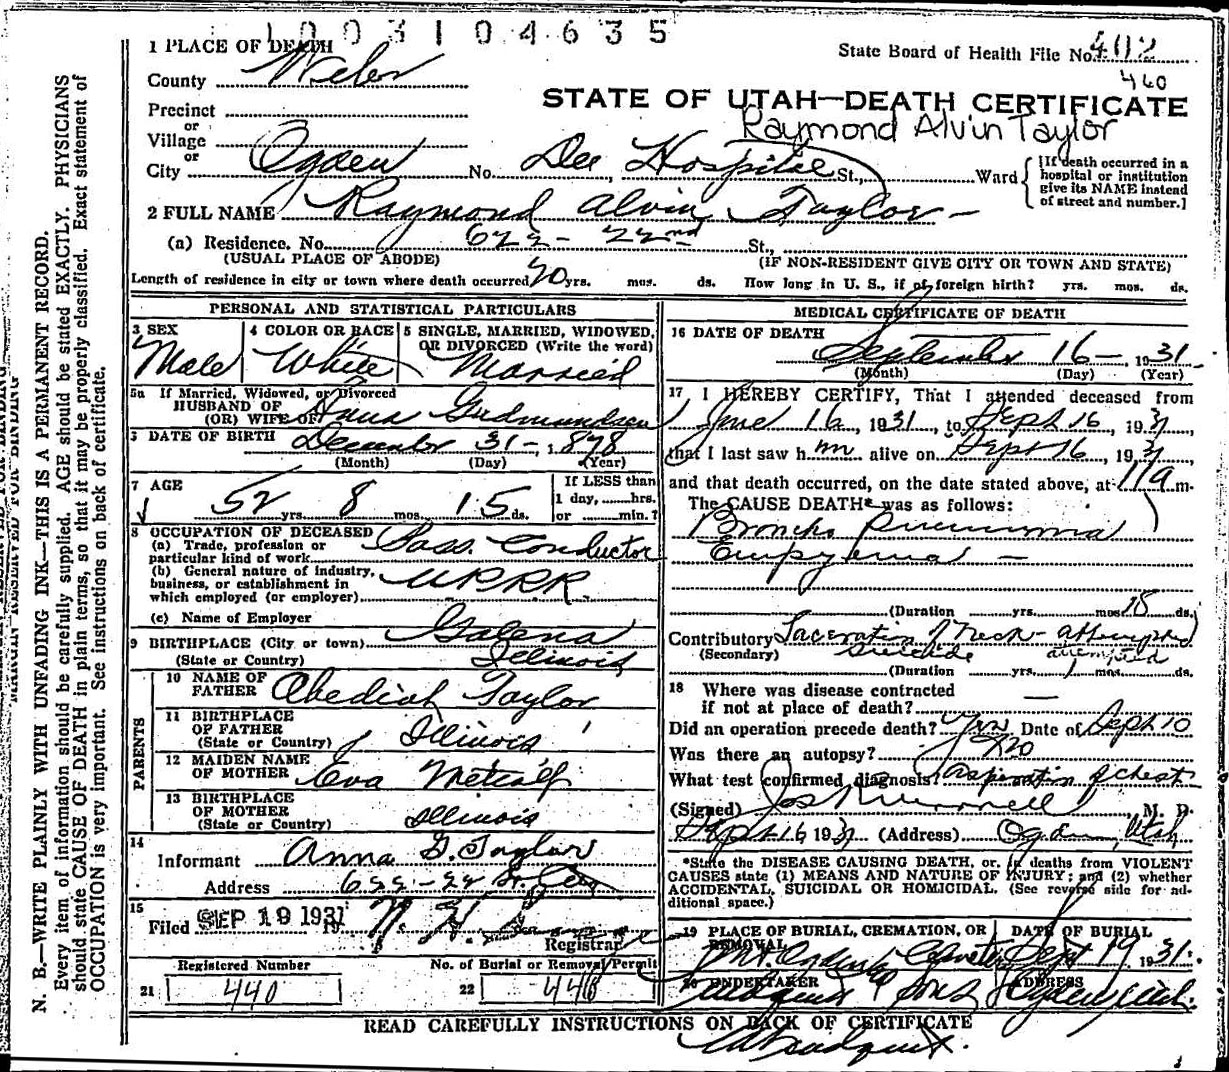 1003104635
1 PLACE OF DEATH
State Board of Health File No. 402
County Weber
460
STATE OF UTAH—DEATH CERTIFICATE
Precinct
Raymond Alvin Taylor
or
Village
or
City Ogden No. Dee Hospital St., Ward
[If death occurred in a hospital or institution give its NAME instead of street and number.]
2 FULL NAME Raymond Alvin Taylor
(a) Residence. No. 622 - 22nd St.,
(USUAL PLACE OF ABODE) (IF NON-RESIDENT GIVE CITY OR TOWN AND STATE)
Length of residence in city or town where death occurred yrs. mos. ds. How long in U. S., if of foreign birth? yrs. mos. ds.
PERSONAL AND STATISTICAL PARTICULARS
3 SEX
Male
4 COLOR OR RACE
White
5 SINGLE, MARRIED, WIDOWED,
OR DIVORCED (Write the word)
Married
5a If Married, Widowed, or Divorced
HUSBAND OF
(OR) WIFE OF Anna Gudmundsen
DATE OF BIRTH December 31-, 1878
(Month) (Day) (Year)
7 AGE
52 yrs. 8 mos. 15 ds.
If LESS than
1 day, hrs.
or min.?
8 OCCUPATION OF DECEASED
(a) Trade, profession or
particular kind of work Pass. Conductor
(b) General nature of industry,
business, or establishment in
which employed (or employer) U.P.R.R.
(c) Name of Employer
9 BIRTHPLACE (City or town) Galena
(State or Country) Illinois
PARENTS
10 NAME OF
FATHER Obediah Taylor
11 BIRTHPLACE
OF FATHER
(State or Country) Illinois
12 MAIDEN NAME
OF MOTHER Eva Metcalf
13 BIRTHPLACE
OF MOTHER
(State or Country) Illinois
14
Informant Anna G. Taylor
Address 622-22
15
Filed SEP 19 1931
Registrar
Registered Number
21 440
No. of Burial or Removal Permit
22 446
MEDICAL CERTIFICATE OF DEATH
16 DATE OF DEATH
September 16- 1931
(Month) (Day) (Year)
17 I HEREBY CERTIFY, That I attended deceased from
June 16, 1931, to Sept 16, 1931
that I last saw h m alive on Sept 16, 1931,
and that death occurred, on the date stated above, at 11a m.
The CAUSE DEATH* was as follows:
Broncho pneumonia
Empyema —
(Duration yrs. mos. 18 ds.
Contributory Laceration of Neck - attempted
(Secondary) suicide attempted
(Duration yrs. 1 mos. ds.
18 Where was disease contracted
if not at place of death? —
Did an operation precede death? Yes Date of Sept 10
Was there an autopsy? No
What test confirmed diagnosis? Aspiration of chest
(Signed) M. D.
Sept 16 1931 (Address) Ogden, Utah
*State the DISEASE CAUSING DEATH, or, in deaths from VIOLENT
CAUSES state (1) MEANS AND NATURE OF INJURY; and (2) whether
ACCIDENTAL, SUICIDAL OR HOMICIDAL. (See reverse side for ad-
ditional space.)
19 PLACE OF BURIAL, CREMATION, OR
REMOVAL
DATE OF BURIAL
Sept 19 1931
20 UNDERTAKER
& Sons
ADDRESS
Ogden Utah
READ CAREFULLY INSTRUCTIONS ON BACK OF CERTIFICATE
MARGIN RESERVED FOR BINDING
N. B.—WRITE PLAINLY WITH UNFADING INK—THIS IS A PERMANENT RECORD.
Every item of information should be carefully supplied. AGE should be stated EXACTLY. PHYSICIANS
should state CAUSE OF DEATH in plain terms, so that it may be properly classified. Exact statement of
OCCUPATION is very important. See instructions on back of certificate.